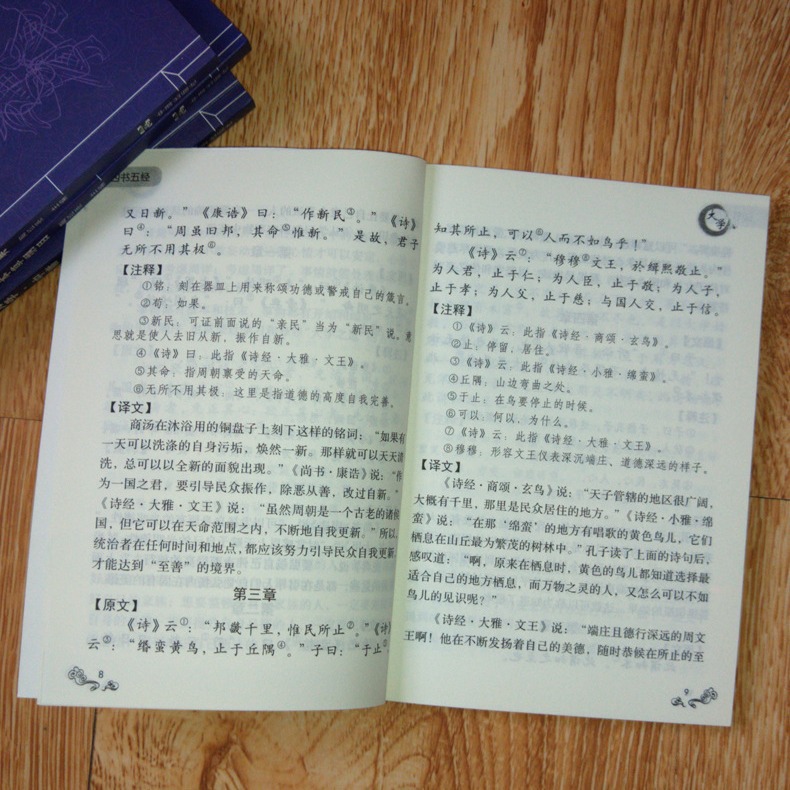 书五经
又日新。”《康诰》曰：“作新民③。”《诗》
曰④：“周虽旧邦，其命⑤惟新。”是故，君子
无所不用其极⑥。
【注释】
①铭：刻在器皿上用来称颂功德或警戒自己的箴言。
②苟：如果。
③新民：可证前面说的“亲民”当为“新民”说，意
思就是使人去旧从新，振作自新。
④《诗》曰：此指《诗经·大雅·文王》。
⑤其命：指周朝禀受的天命。
⑥无所不用其极：这里是指道德的高度自我完善。
【译文】
商汤在沐浴用的铜盘子上刻下这样的铭词：“如果有
一天可以洗涤的自身污垢，焕然一新。那样就可以天天清
洗，总可以以全新的面貌出现。”《尚书·康诰》说：“作
为一国之君，要引导民众振作，除恶从善，改过自新。”
《诗经·大雅·文王》说：“虽然周朝是一个古老的诸侯
国，但它可以在天命范围之内，不断地自我更新。”所以，
统治者在任何时间和地点，都应该努力引导民众自我更新，
才能达到“至善”的境界。
第三章
【原文】
《诗》云①：“邦畿千里，惟民所止②。”《诗》
云③：“缗蛮黄鸟，止于丘隅④。”子曰：“于止⑤，
8
大学
知其所止，可以⑥人而不如鸟乎！”
《诗》云⑦：“穆穆⑧文王，於缉熙敬止。”
为人君，止于仁；为人臣，止于敬；为人子，
止于孝；为人父，止于慈；与国人交，止于信。
【注释】
①《诗》云：此指《诗经·商颂·玄鸟》。
②止：停留，居住。
③《诗》云：此指《诗经·小雅·绵蛮》。
④丘隅：山边弯曲之处。
⑤于止：在鸟要停止的时候。
⑥可以：何以，为什么。
⑦《诗》云：此指《诗经·大雅·文王》。
⑧穆穆：形容文王仪表深沉端庄、道德深远的样子。
【译文】
《诗经·商颂·玄鸟》说：“天子管辖的地区很广阔，
大概有千里，那里是民众居住的地方。”《诗经·小雅·绵
蛮》说：“在那‘绵蛮’的地方有唱歌的黄色鸟儿，它们
栖息在山丘最为繁茂的树林中。”孔子读了上面的诗句后，
感叹道：“啊，原来在栖息时，黄色的鸟儿都知道选择最
适合自己的地方栖息，而万物之灵的人，又怎么可以不如
鸟儿的见识呢？”
《诗经·大雅·文王》说：“端庄且德行深远的周文
王啊！他在不断发扬着自己的美德，随时恭候在所止的至
9